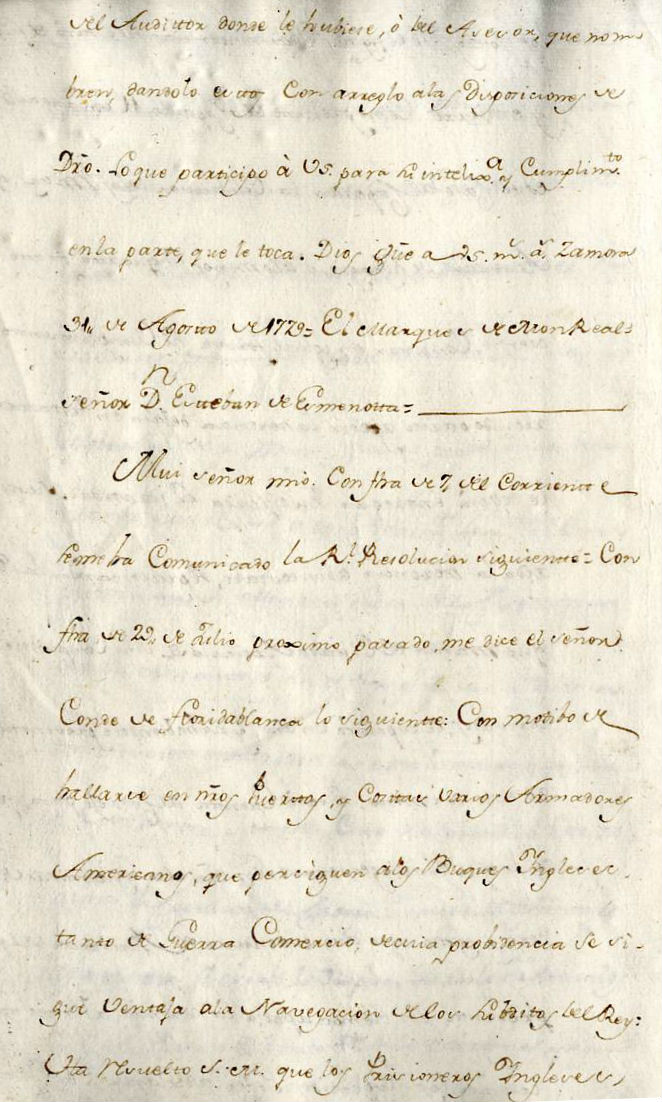 del Auditor donde le hubiese, ò del Asesor, que nom
bren, dandolo esto Con arreglo a las Disposiciones de
Dr̃o. Lo que participo à VS. para su intelix.ª y Cumplim.to
en la parte, que le toca. Dios gũe a VS. m.s a.s Zamora
31,, de Agosto de 1779= El Marques de MonReal=
señor D.n Esteban de Esmenotta=
Mui señor mio. Con fha de 7,, del Corriente
se me ha Comunicado la R.l Resolucion siguiente= Con
fha de 29,, de Julio proximo pasado, me dice el señor
Conde de floridablanca lo siguiente: Con motibo de
hallarse en nr̃os Puertos, y Costas varios Armadores
Americanos, que persiguen a los Buques Ingleses,
tanto de Guerra Comercio, de cuia probidencia se si-
gue Ventaja a la Navegacion de los subditos del Rey:
Ha Resuelto S. M. que los Prisioneros Ingleses,